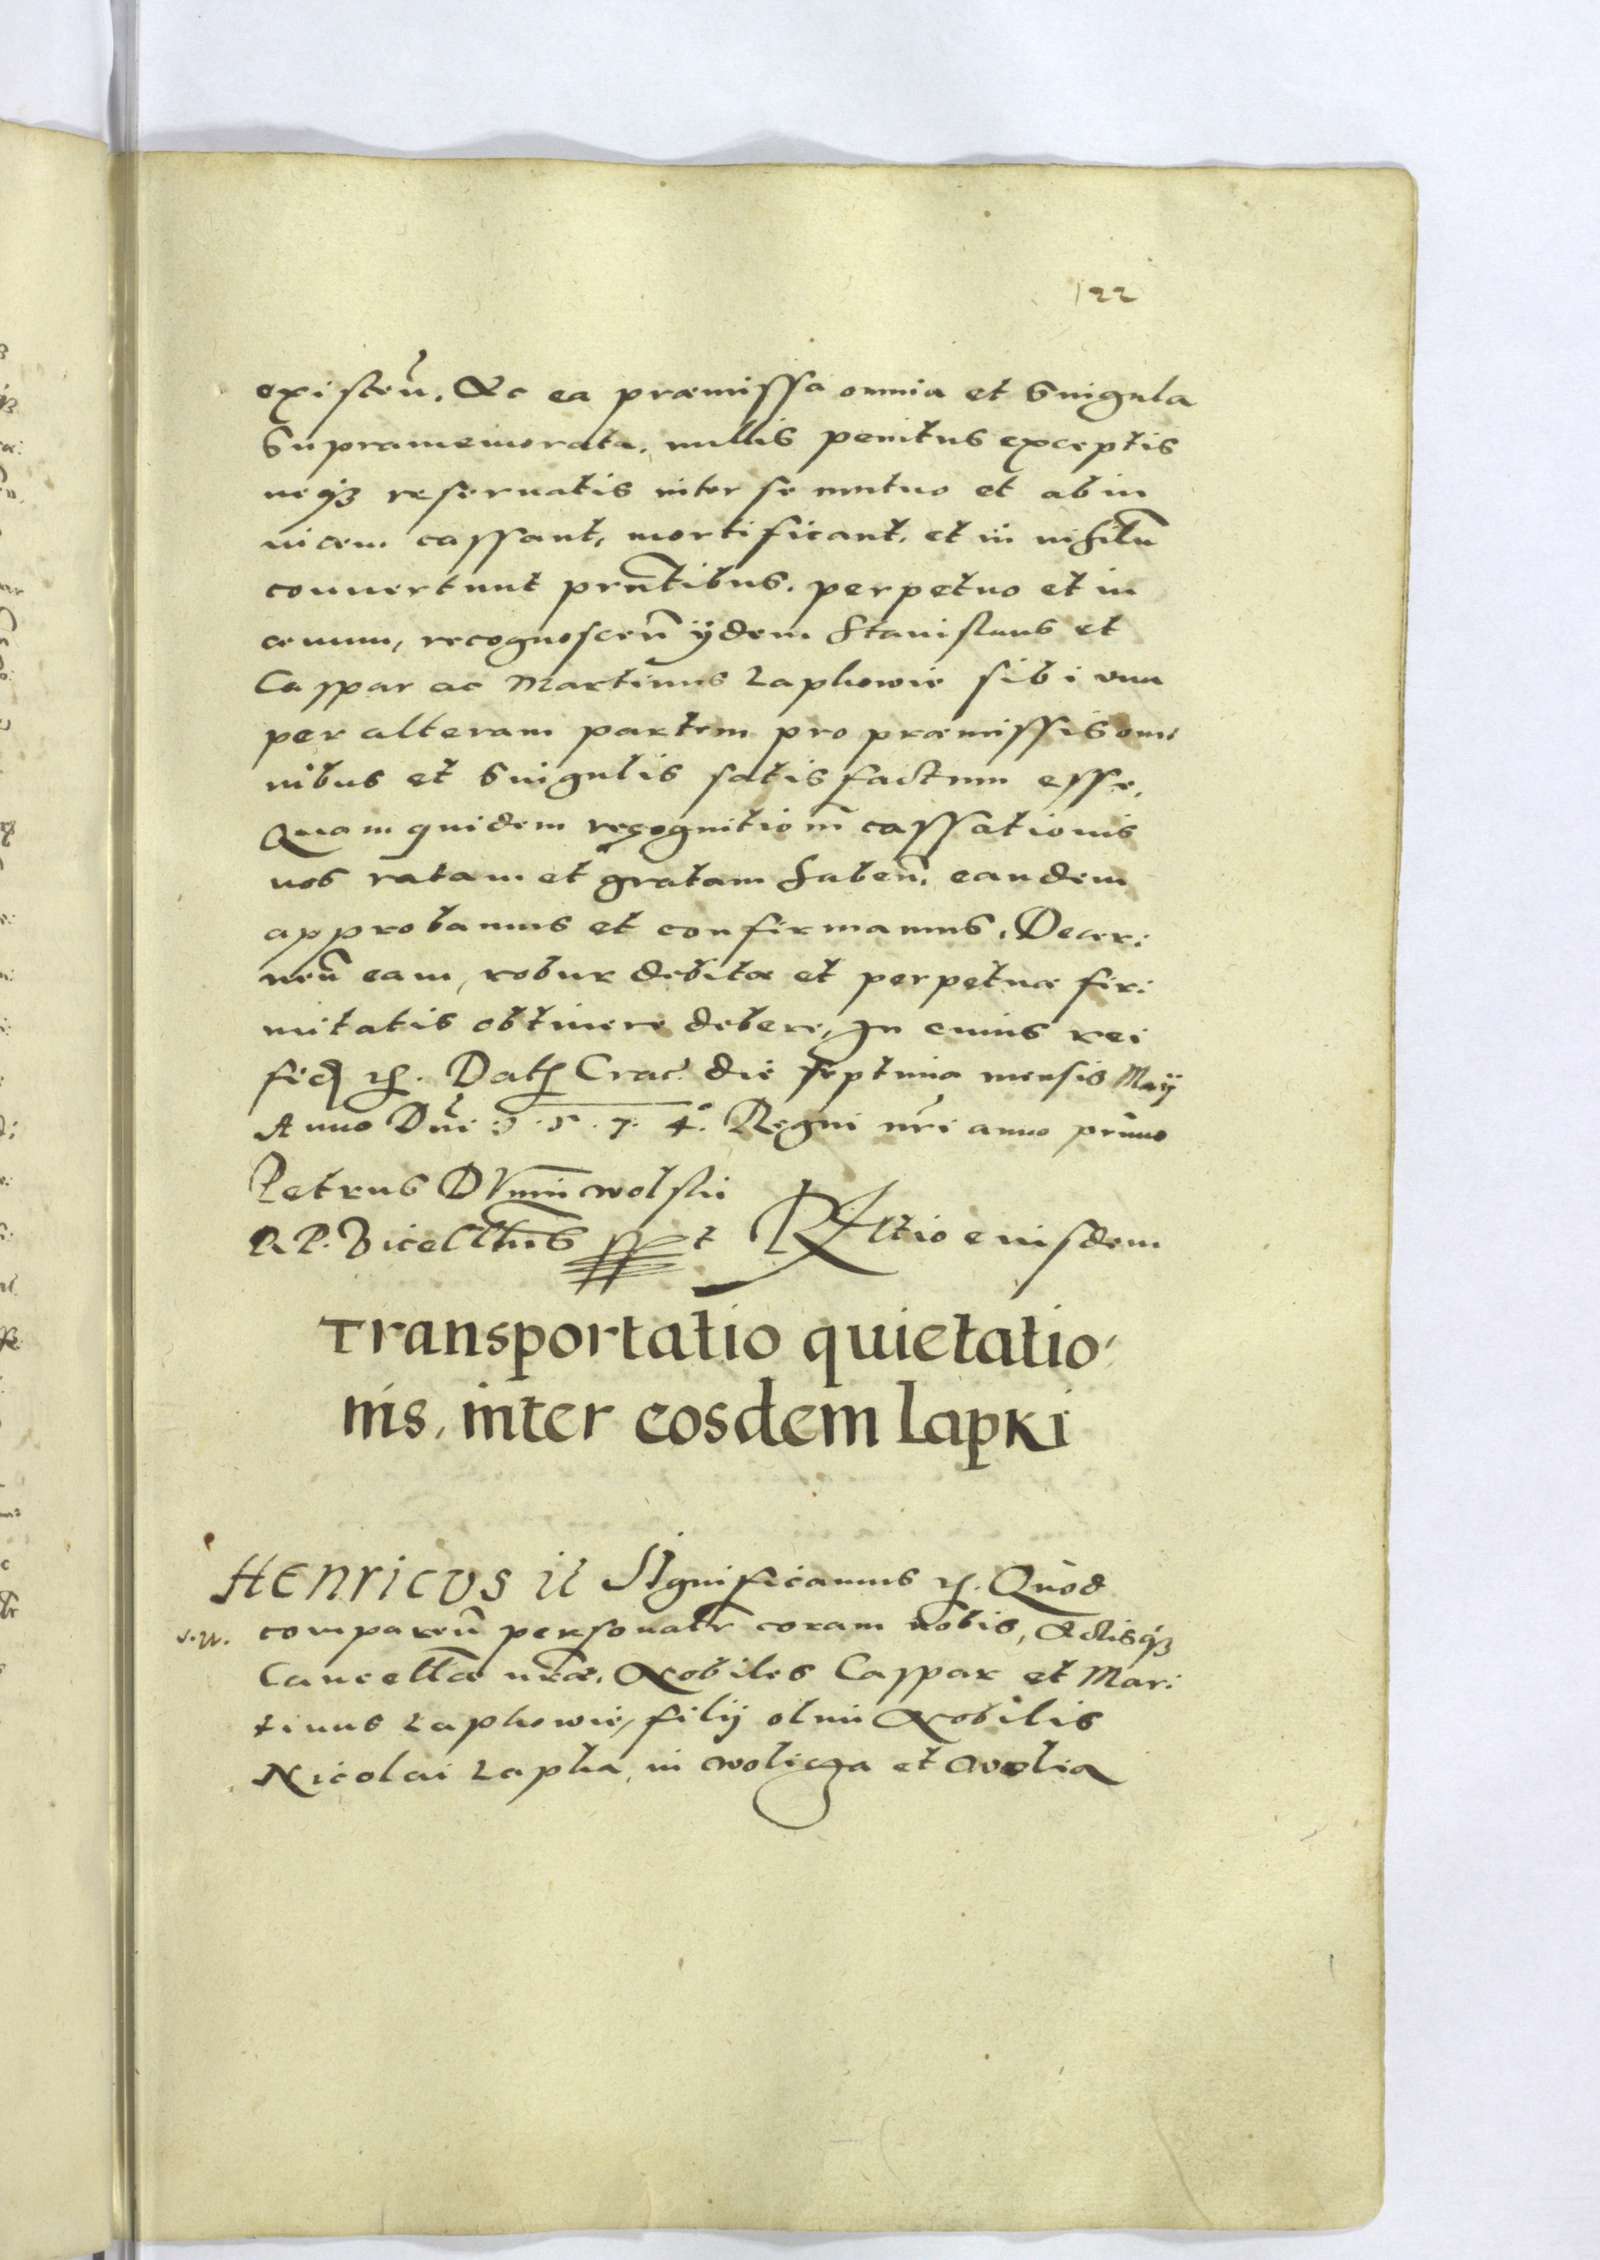 122
existeñ. Ac ea præmissa omnia et Singula
Supramemorata, nullis penitus exceptis
neqȝ reseruatis inter se mutuo et abin
uicem cassant, mortificant, et iñ nihilũ
conuertunt prñtibus. perpetuo et in
æuum, recognosceñ ijdem Stanislaus et
Caspar ac Martinus Lapkowie sibi una
per alteram partem pro præmissis om:
nibus et Singulis satisfactum esse,
Quam quidem recognitionẽ cassationis
nos ratam et gratam habeñ, eandem
approbamus et confirmamus. Decer:
neñ eam, robur debitæ et perpetuæ fir:
mitatis obtinere debere, In cuius rei
fid etc. Dat Crac. die septima mensis Maij
Anno Dñi .1.5.7.4. Regni nr̃i anno primo
Petrus D Vniñ wolski
R. P. Vicecllrius sspt RElatio eiusdem
Transportatio quietatio:
nis, inter eosdem Lapki
Henricus it SIgnificamus etc. Quòd
compareñ personatr coram nobis, Actisqȝ
Cancellæ nræ, Nobiles Caspar et Mar:
tinus Lapkowie, filij olim Nobilis
Nicolai Lapka, in wolicza et wolia